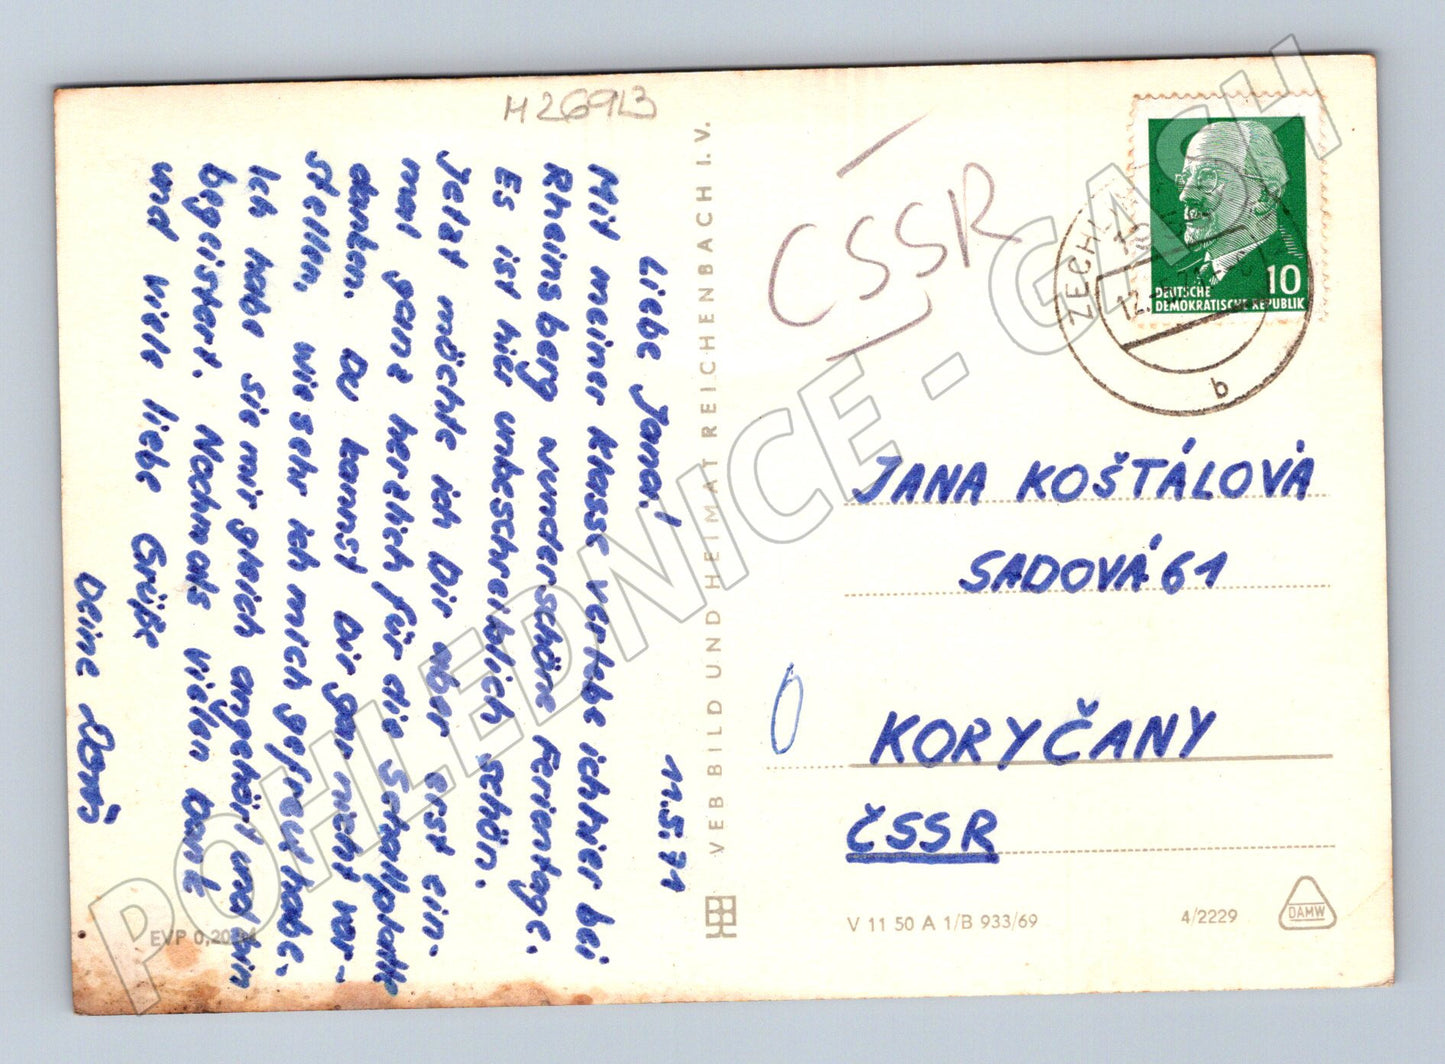 M 26913
11.5.71
Liebe Jana!
Mit meiner Klasse verlebe ich hier bei
Rheinsberg wunderschöne Ferientage.
Es ist hier unbeschreiblich schön.
Jetzt möchte ich Dir aber erst ein-
mal ganz herzlich für die Schallplatte
danken. Du kannst Dir gar nicht vor-
stellen, wie sehr ich mich gefreut habe.
Ich habe sie mir gleich angehört und bin
begeistert. Nochmals vielen Dank
und viele liebe Grüße
Deine Doris
EVP 0,20 M
VEB BILD UND HEIMAT REICHENBACH I. V.
ČSSR
ZECHLIN
12.
b
10
DEUTSCHE
DEMOKRATISCHE REPUBLIK
JANA KOŠTÁLOVÁ
SADOVÁ 61
KORYČANY
ČSSR
V 11 50 A 1/B 933/69
4/2229
DAMW
POHLEDNICE - GASH